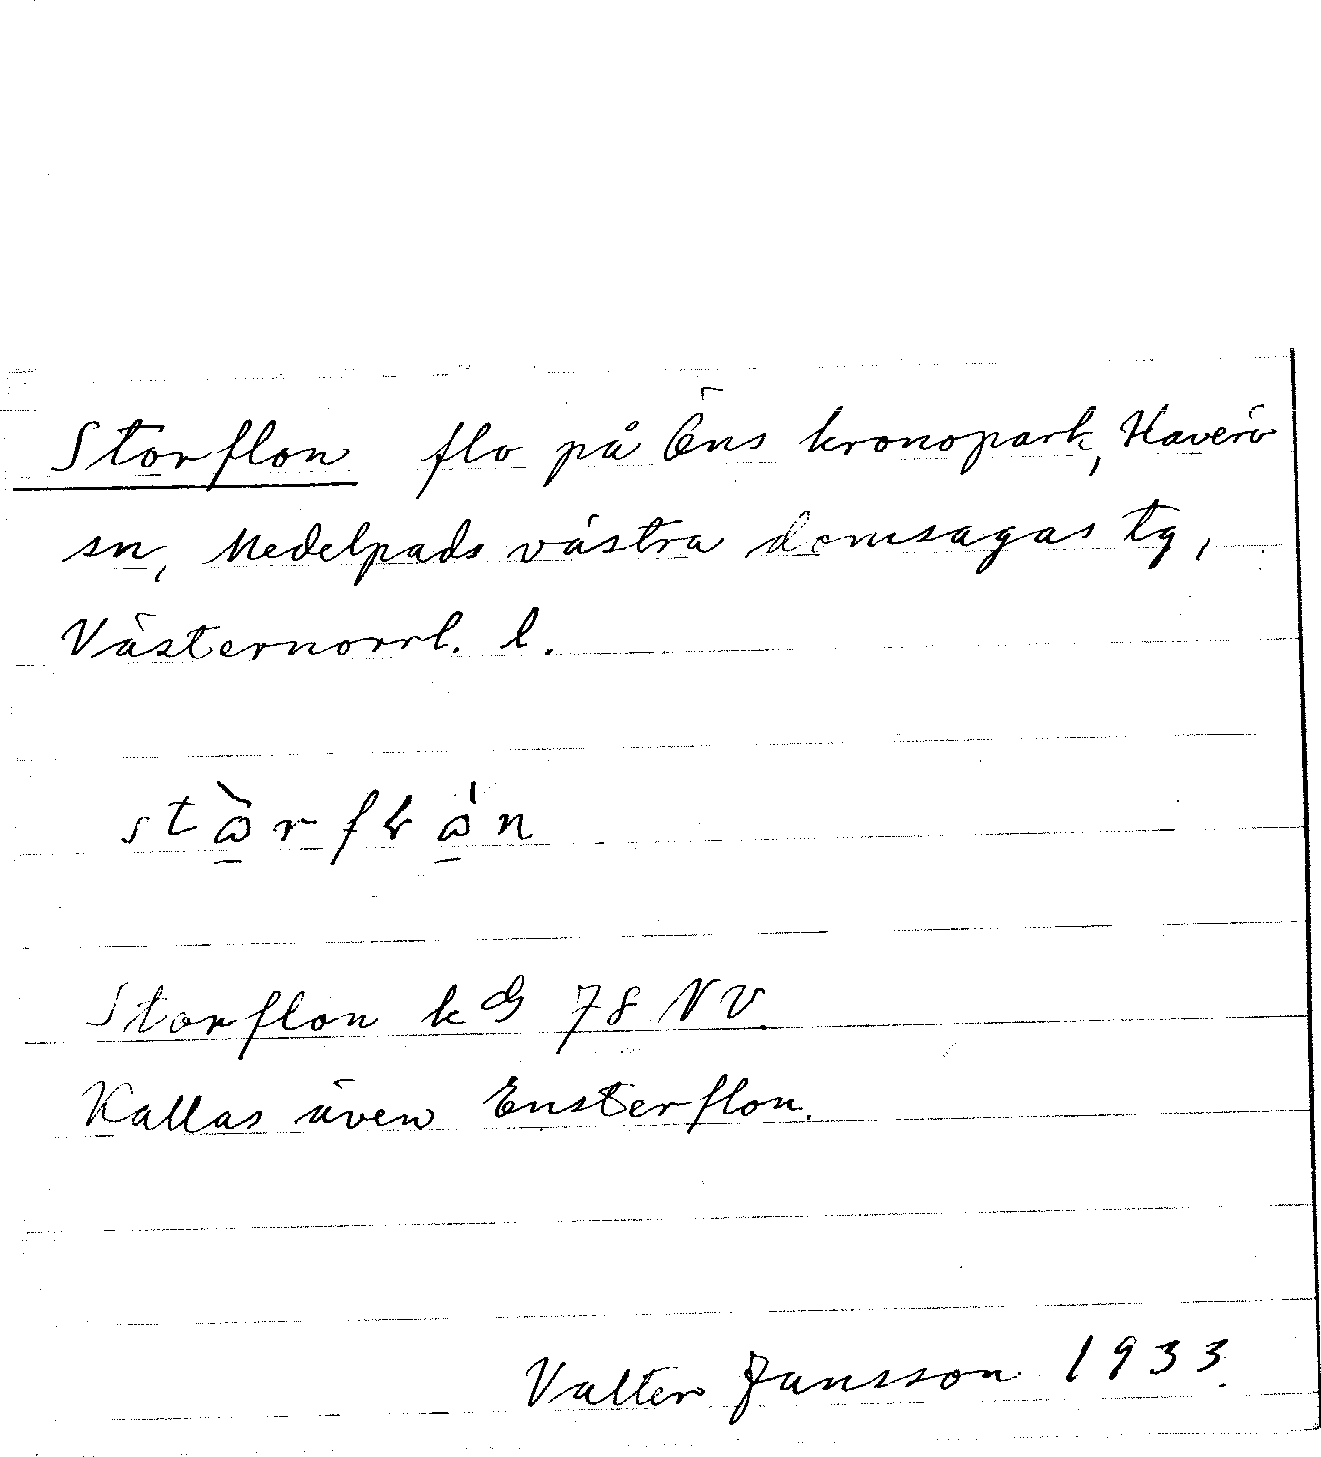 Storflon flo på Öns kronopark, Haverö
sn, Medelpads västra domsagas tg,
Västernorrl. l.
Storflon k 78 NV.
Kallas även Ensterflon.
Valter Jansson 1933.